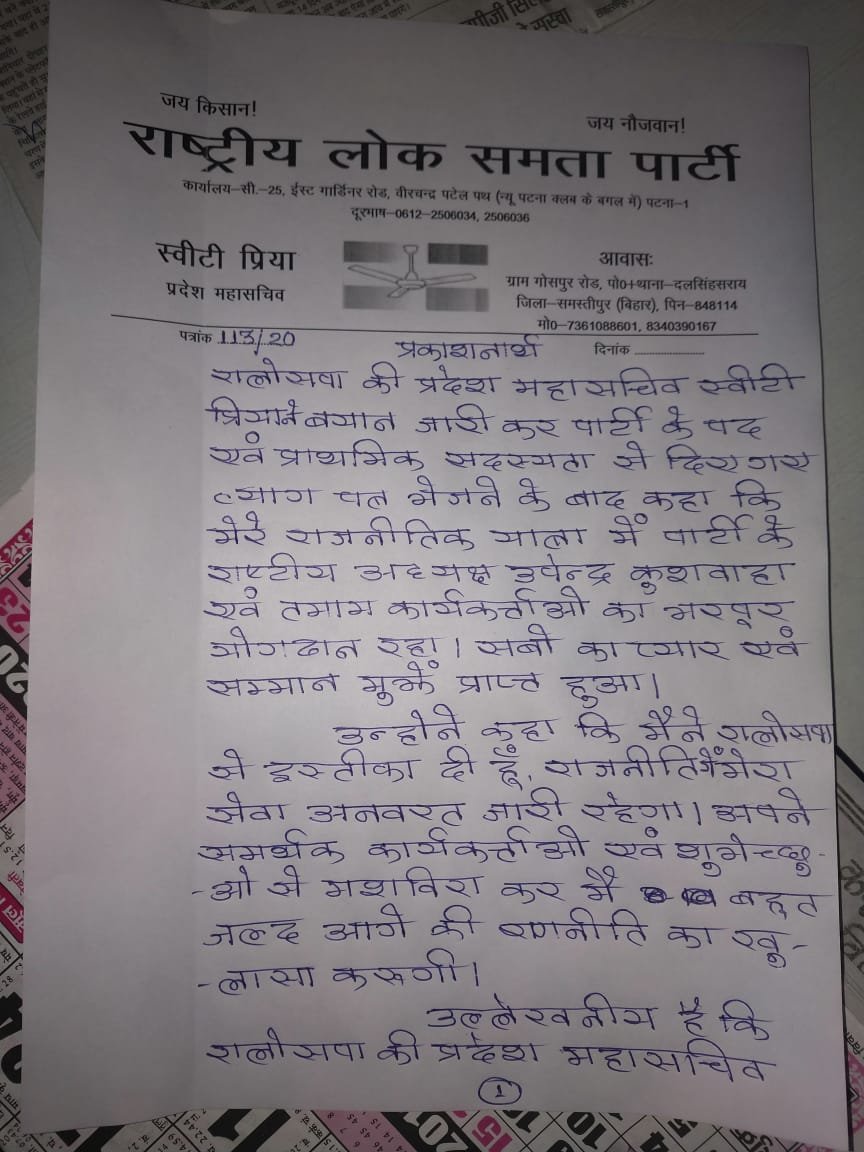 जय किसान!
जय नौजवान!
राष्ट्रीय लोक समता पार्टी
कार्यालय–सी.–25, ईस्ट गार्डिनर रोड, वीरचन्द्र पटेल पथ (न्यू पटना क्लब के बगल में) पटना–1
दूरभाष–0612–2506034, 2506036
स्वीटी प्रिया
प्रदेश महासचिव
आवासः
ग्राम गोसपुर रोड, पो0+थाना–दलसिंहसराय
जिला–समस्तीपुर (बिहार), पिन–848114
मो0–7361088601, 8340390167
पत्रांक 113/20
प्रकाशनार्थ
दिनांक ....................
रालोसपा की प्रदेश महासचिव स्वीटी
प्रियाने बयान जारी कर पार्टी के पद
एवं प्राथमिक सदस्यता से दिए गए
त्याग पत्र भेजने के बाद कहा कि
मेरे राजनीतिक यात्रा में पार्टी के
राष्ट्रीय अध्यक्ष उपेन्द्र कुशवाहा
एवं तमाम कार्यकर्त्ताओ का भरपूर
योगदान रहा। सबो का प्यार एवं
सम्मान मुझें प्राप्त हुआ।
उन्होने कहा कि मैने रालोसपा
से इस्तीफा दी हूँ, राजनीति में मेरा
सेवा अनवरत जारी रहेगा। अपने
समर्थक कार्यकर्त्ताओ एवं शुभेच्छु-
-ओ से मशविरा कर मै बहुत
जल्द आगे की रणनीति का खु-
-लासा करूगी।
उल्लेखनीय है कि
रालोसपा की प्रदेश महासचिव
1